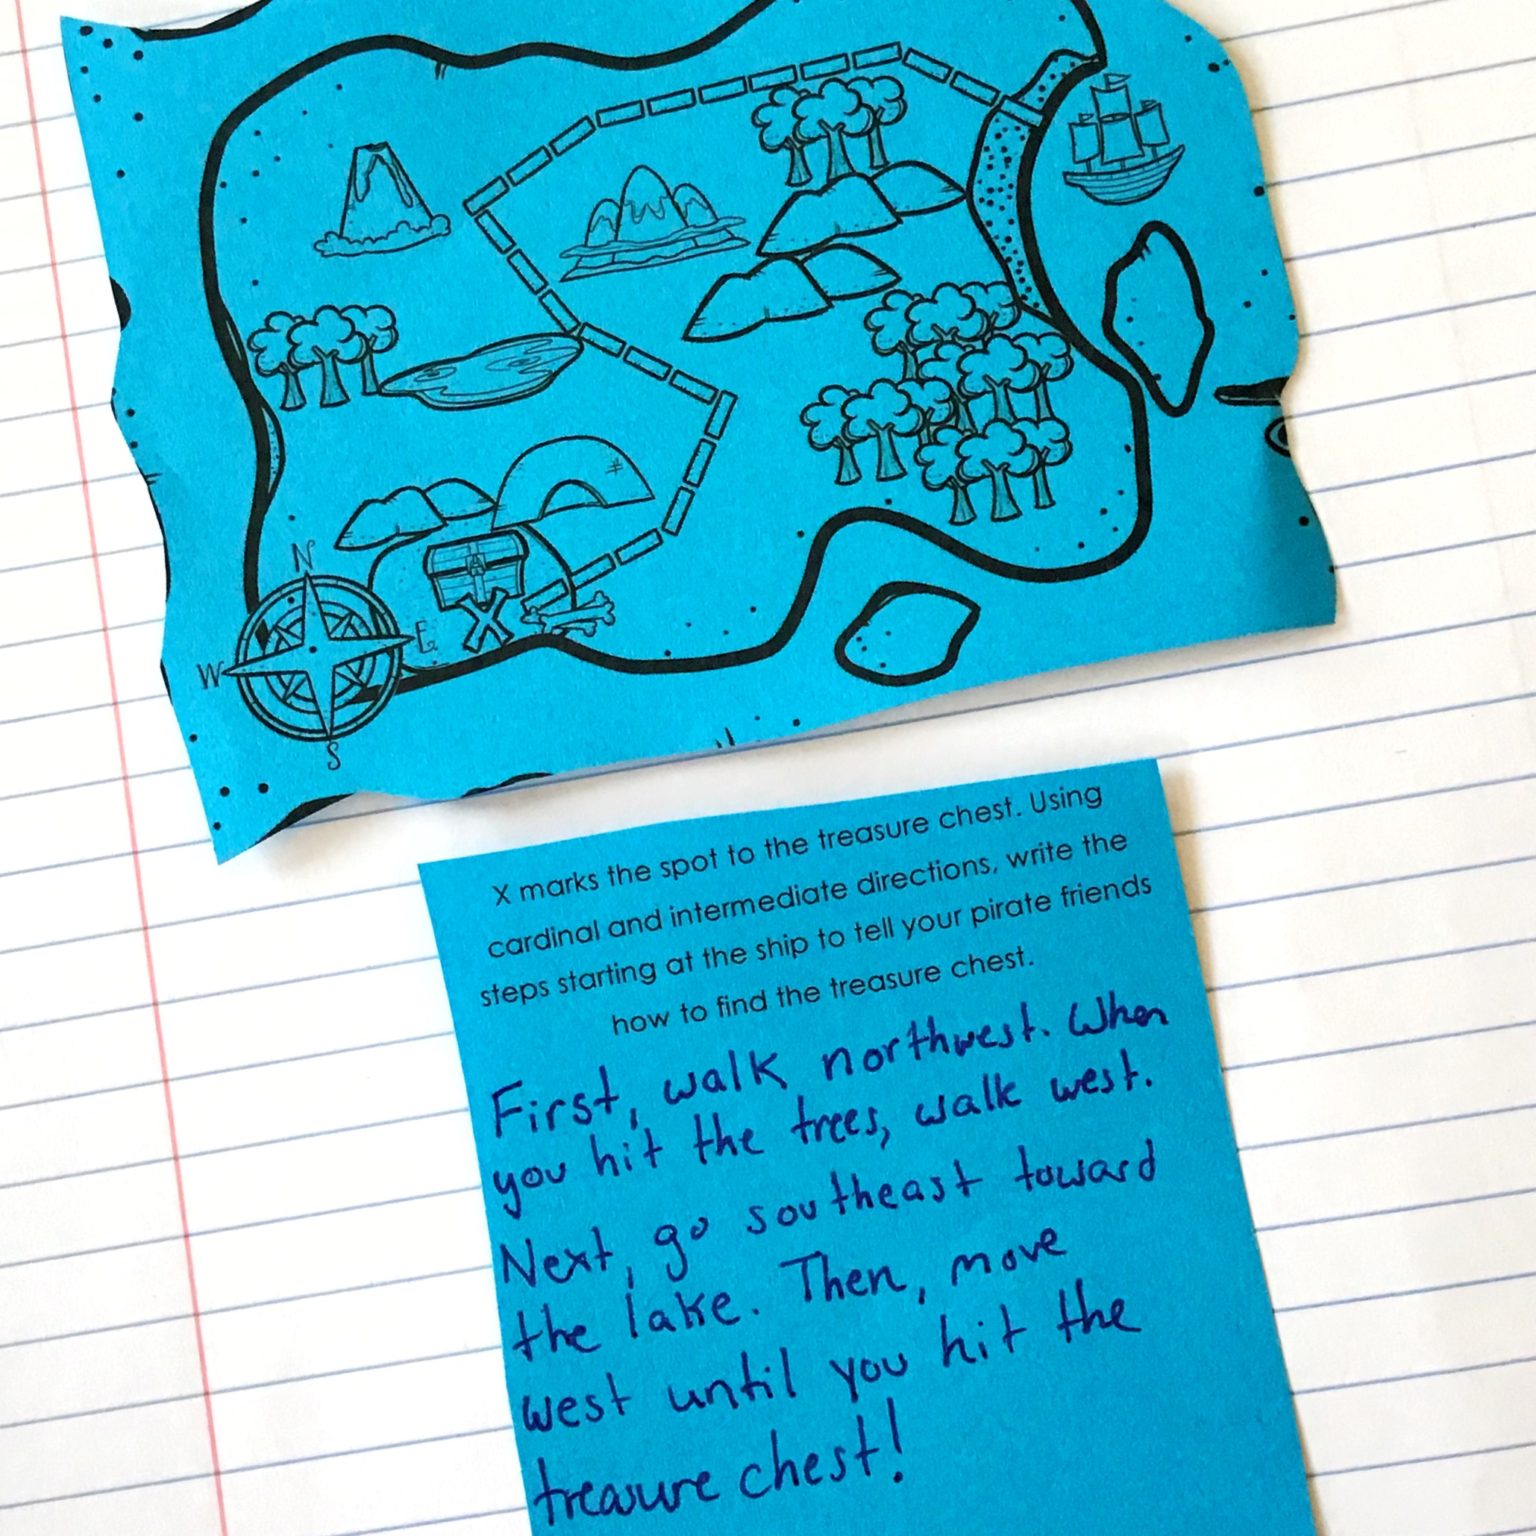 N
W
E
S
X marks the spot to the treasure chest. Using
cardinal and intermediate directions, write the
steps starting at the ship to tell your pirate friends
how to find the treasure chest.
First, walk northwest. When
you hit the trees, walk west.
Next, go southeast toward
the lake. Then, move
west until you hit the
treasure chest!